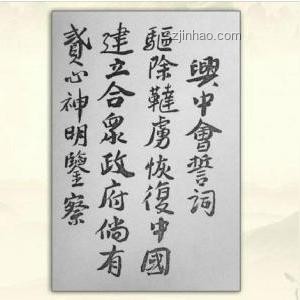 興中會誓詞
驅除韃虜恢復中國
建立合衆政府倘有
貳心神明鑒察
zjinhao.com